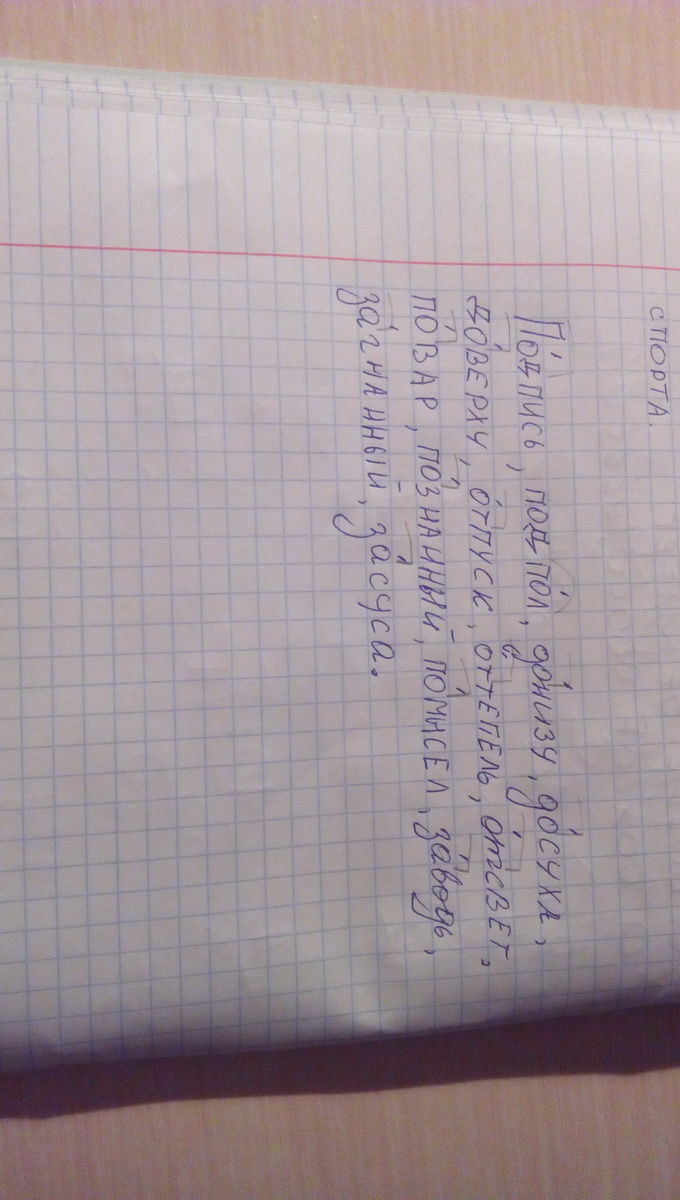 СПОРТА.
Подпись, подпол, донизу, досуха,
доверху, отпуск, оттепель, отсвет,
повар, познанный, помысел, заводь,
загнанный, засуса.